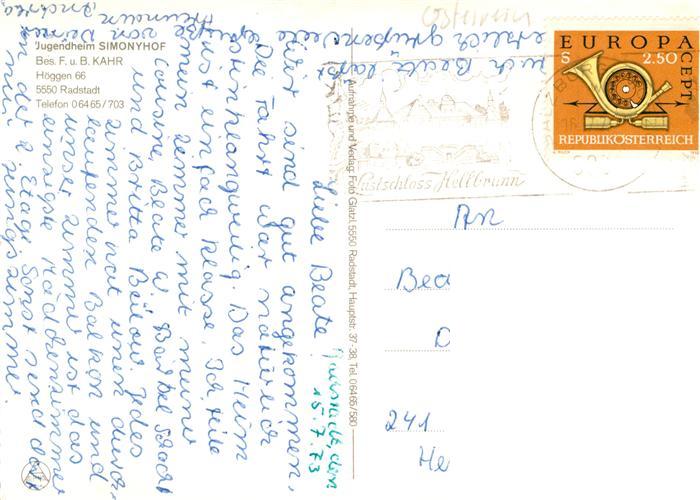 Jugendheim SIMONYHOF
Bes. F. u. B. KAHR
Höggen 66
5550 Radstadt
Telefon 06465/703
15.7.73
Liebe Beate!
Wir sind gut angekommen,
Die Fahrt war natürlich
langweilig. Das Heim
ist einfach klasse. Ich teile
mein Zimmer mit meiner
Cousine, Beate W. Bärbel Schacht
und Britta Beilow. Jedes
Zimmer hat einen durch-
laufenden Balkon und
unser Zimmer ist das
einzigste Mädchenzimmer
in der 2 Etage. Sonst sind dort
nur Jungszimmer.
herzlich grüßen
auch Beate läßt
von Deiner
Freundin
Aufnahme und Verlag: Foto Glatzl, 5550 Radstadt, Hauptstr. 37-38, Tel. 06465/580
Österreich
EUROPA
CEPT
S 2.50
REPUBLIK ÖSTERREICH
Lustschloss Hellbrunn
An
Bea
D
241
He